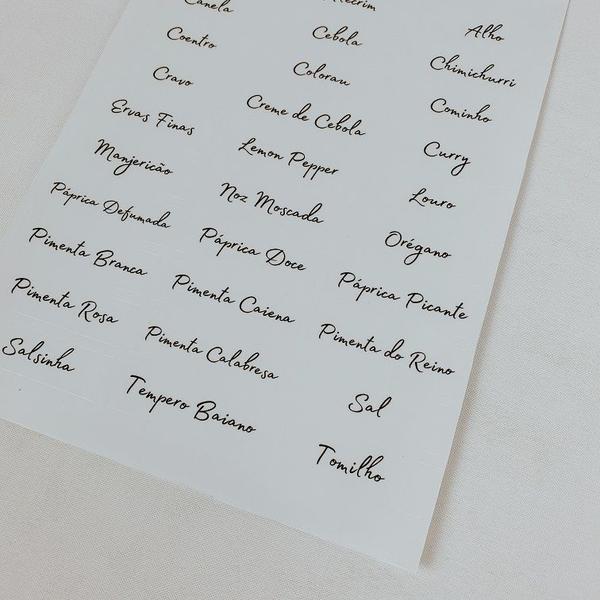 Alho
Canela
Cebola
Chimichurri
Coentro
Colorau
Cominho
Cravo
Creme de Cebola
Curry
Ervas Finas
Lemon Pepper
Louro
Manjericão
Noz Moscada
Orégano
Páprica Defumada
Páprica Doce
Páprica Picante
Pimenta Branca
Pimenta Caiena
Pimenta do Reino
Pimenta Rosa
Pimenta Calabresa
Sal
Salsinha
Tempero Baiano
Tomilho